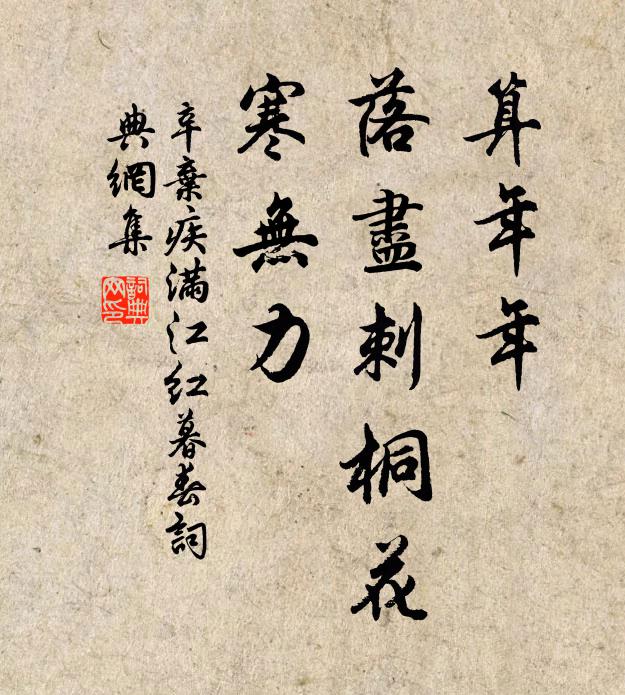 算年年
落盡刺桐花
寒無力
辛棄疾滿江紅暮春詞
典網集
詞典網印